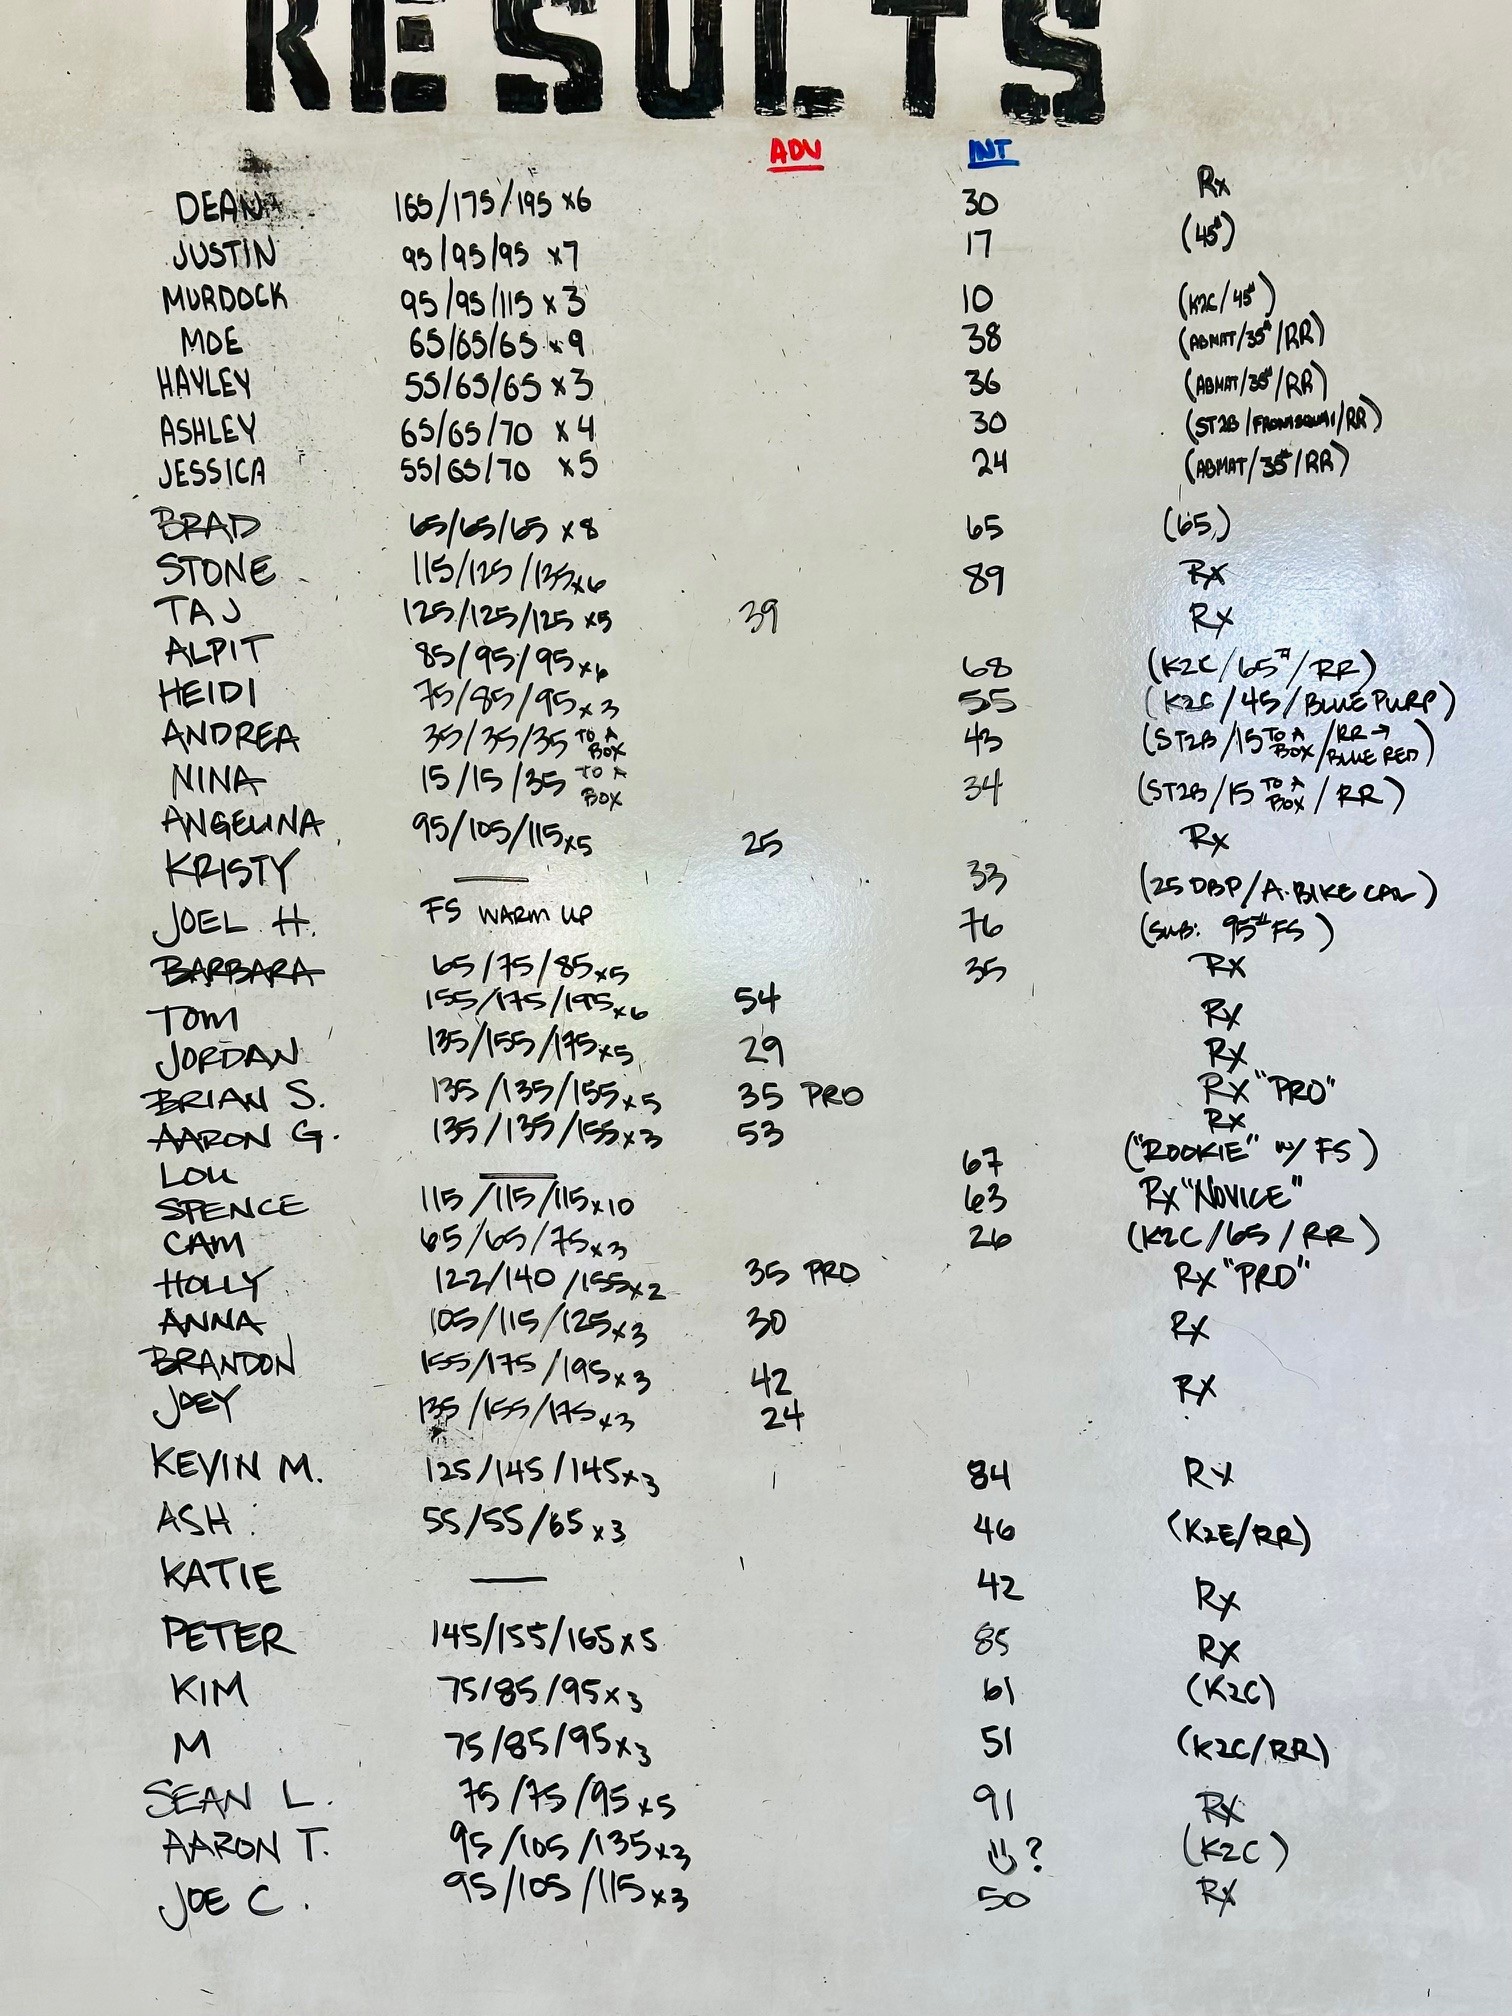 RESULTS
ADV INT
DEAN 165/175/195 x6 30 Rx
JUSTIN 95/95/95 x7 17 (45#)
MURDOCK 95/95/115 x 3 10 (K2C/45#)
MOE 65/65/65 x 9 38 (ABMAT/35#/RR)
HAYLEY 55/65/65 x 3 36 (ABMAT/35#/RR)
ASHLEY 65/65/70 x 4 30 (ST2B/FRONT SQUAT/RR)
JESSICA 55/65/70 x 5 24 (ABMAT/35#/RR)
BRAD 65/65/65 x 8 65 (65)
STONE 115/125/135 x6 89 Rx
TAJ 125/125/125 x5 39 Rx
ALPIT 85/95/95 x6 68 (K2C/65#/RR)
HEIDI 75/85/95 x 3 55 (K2C/45/BLUE PURP)
ANDREA 35/35/35 TO A BOX 43 (ST2B/15 TO A BOX/RR→ BLUE RED)
NINA 15/15/35 TO A BOX 34 (ST2B/15 TO A BOX/RR)
ANGELINA 95/105/115 x5 25 Rx
KRISTY — 33 (25 DBP/A.BIKE CAL)
JOEL H. FS WARM UP 76 (SUB: 95# FS)
BARBARA 65/75/85 x5 35 Rx
TOM 155/175/195 x6 54 Rx
JORDAN 135/155/175 x5 29 Rx
BRIAN S. 135/135/155 x5 35 PRO Rx "PRO"
AARON G. 135/135/155 x3 53 Rx
LOU — 67 ("ROOKIE" W/ FS)
SPENCE 115/115/115 x10 63 Rx "NOVICE"
CAM 65/65/75 x3 26 (K2C/65/RR)
HOLLY 122/140/155 x2 35 PRO Rx "PRO"
ANNA 105/115/125 x3 30 Rx
BRANDON 155/175/195 x3 42 Rx
JOEY 135/155/175 x3 24
KEVIN M. 125/145/145 x3 84 Rx
ASH 55/55/65 x3 46 (K2E/RR)
KATIE — 42 Rx
PETER 145/155/165 x5 85 Rx
KIM 75/85/95 x3 61 (K2C)
M 75/85/95 x3 51 (K2C/RR)
SEAN L. 75/75/95 x5 91 Rx
AARON T. 95/105/135 x3 ? (K2C)
JOE C. 95/105/115 x3 50 Rx